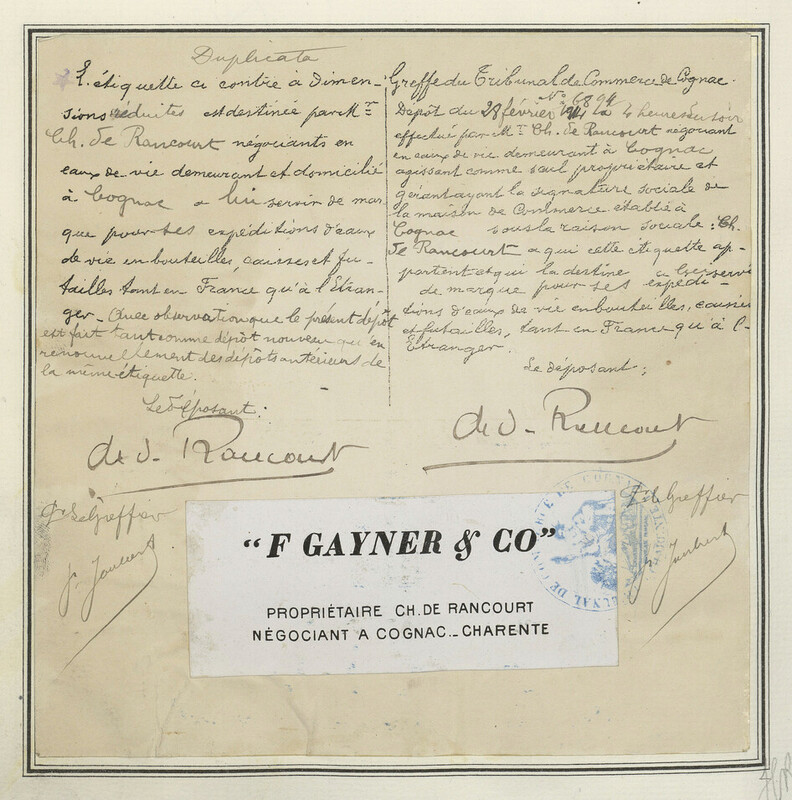 Duplicata
L'étiquette ci contre à dimen-
sions réduites est destinée par Mr
Ch. de Rancourt négociants en
eaux-de-vie demeurant et domicilié
à Cognac a lui servir de mar
que pour ses expéditions d'eaux
de vie en bouteilles, caisses et fu-
tailles tant en France qu'à l'Etran-
ger - Avec observation que le présent dépôt
est fait tant comme dépôt nouveau que en
renouvellement des dépôts antérieurs de
la même étiquette.
Le déposant:
de Rancourt
Pr Le Greffier
Greffe du Tribunal de Commerce de Cognac.
No 6894
Dépôt du 28 février à 4 heures du soir
effectué par Mr Ch. de Rancourt négociant
en eaux de vie demeurant à Cognac
agissant comme seul propriétaire et
gérant ayant la signature sociale de
la maison de Commerce établie à
Cognac sous la raison sociale: Ch.
de Rancourt a qui cette étiquette ap-
partient et qui la destine a lui servir
de marque pour ses expédi-
tions d'eaux de vie en bouteilles, caisses
et futailles, tant en France qu'à l'
Etranger.
Le déposant:
de Rancourt
Pr le Greffier
Joubert
"F GAYNER & CO"
PROPRIÉTAIRE CH. DE RANCOURT
NÉGOCIANT A COGNAC_CHARENTE